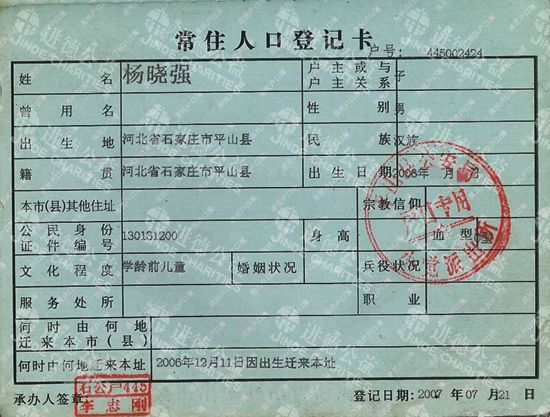 常住人口登记卡
户号: 445002424
姓名 杨晓强 户主或与户主关系 子
曾用名 性别 男
出生地 河北省石家庄市平山县 民族 汉族
籍贯 河北省石家庄市平山县 出生日期 2006年 月
本市(县)其他住址 宗教信仰
公民身份证件编号 130131200 身高 血型
文化程度 学龄前儿童 婚姻状况 兵役状况
服务处所 职业
何时由何地迁来本市(县)
何时由何地迁来本址 2006年12月11日因出生迁来本址
承办人签章: 石公户445 李志刚 登记日期: 2007 年 07 月 21 日
户口专用
派出所
进德公益
JINDE CHARITIES